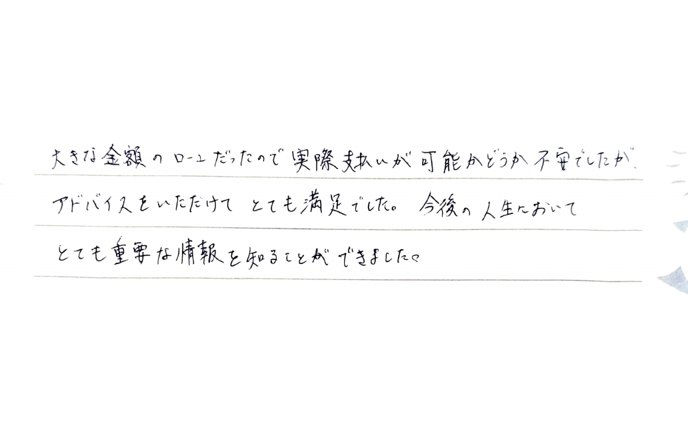 大きな金額のローンだったので実際支払いが可能かどうか不安でしたが、
アドバイスをいただけてとても満足でした。今後の人生において
とても重要な情報を知ることができました。